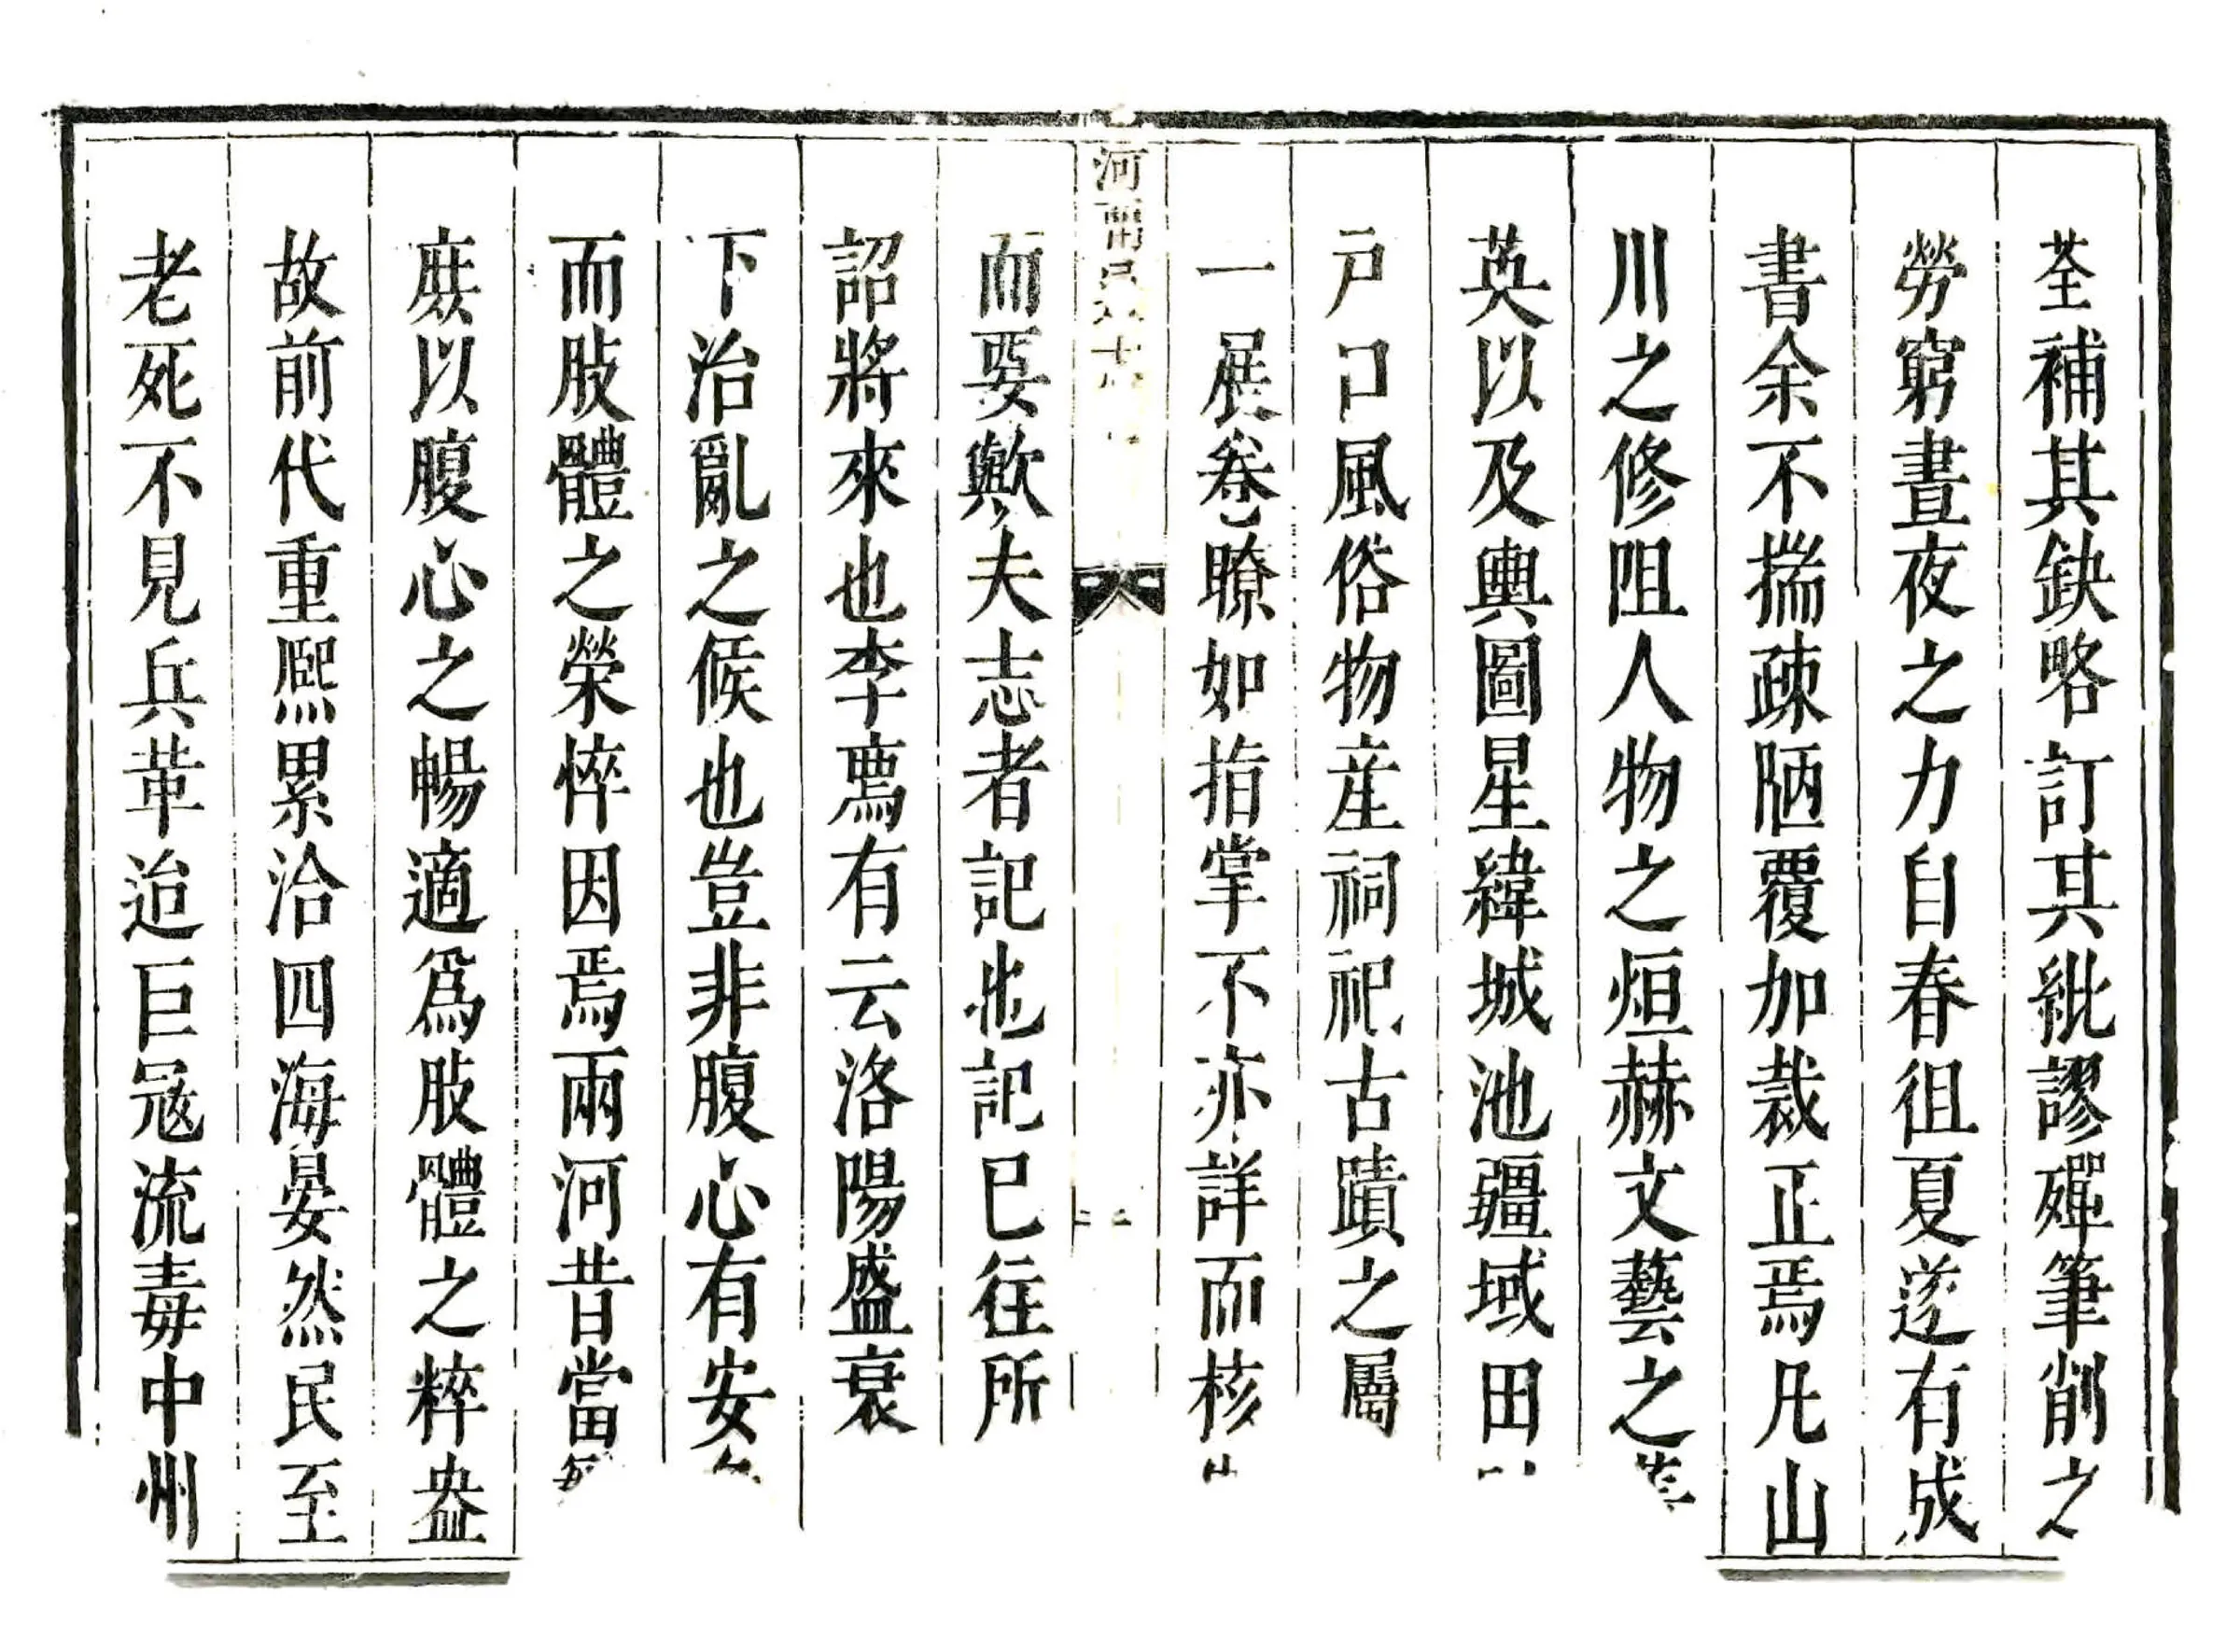 荃補其缺略訂其紕謬殫筆削之
勞窮晝夜之力自春徂夏遂有成
書余不揣疎陋覆加裁正焉凡山
川之修阻人物之烜赫文藝之
英以及輿圖星緯城池疆域田
戸口風俗物産祠祀古蹟之屬
一展卷瞭如指掌不亦詳而核
河
而要歟夫志者記也記已往所
詔將來也李廌有云洛陽盛衰
下治亂之候也豈非腹心有安
而肢體之榮悴因焉兩河昔當
庻以腹心之暢適爲肢體之粹盎
故前代重熈累洽四海晏然民至
老死不見兵革迨巨冦流毒中州